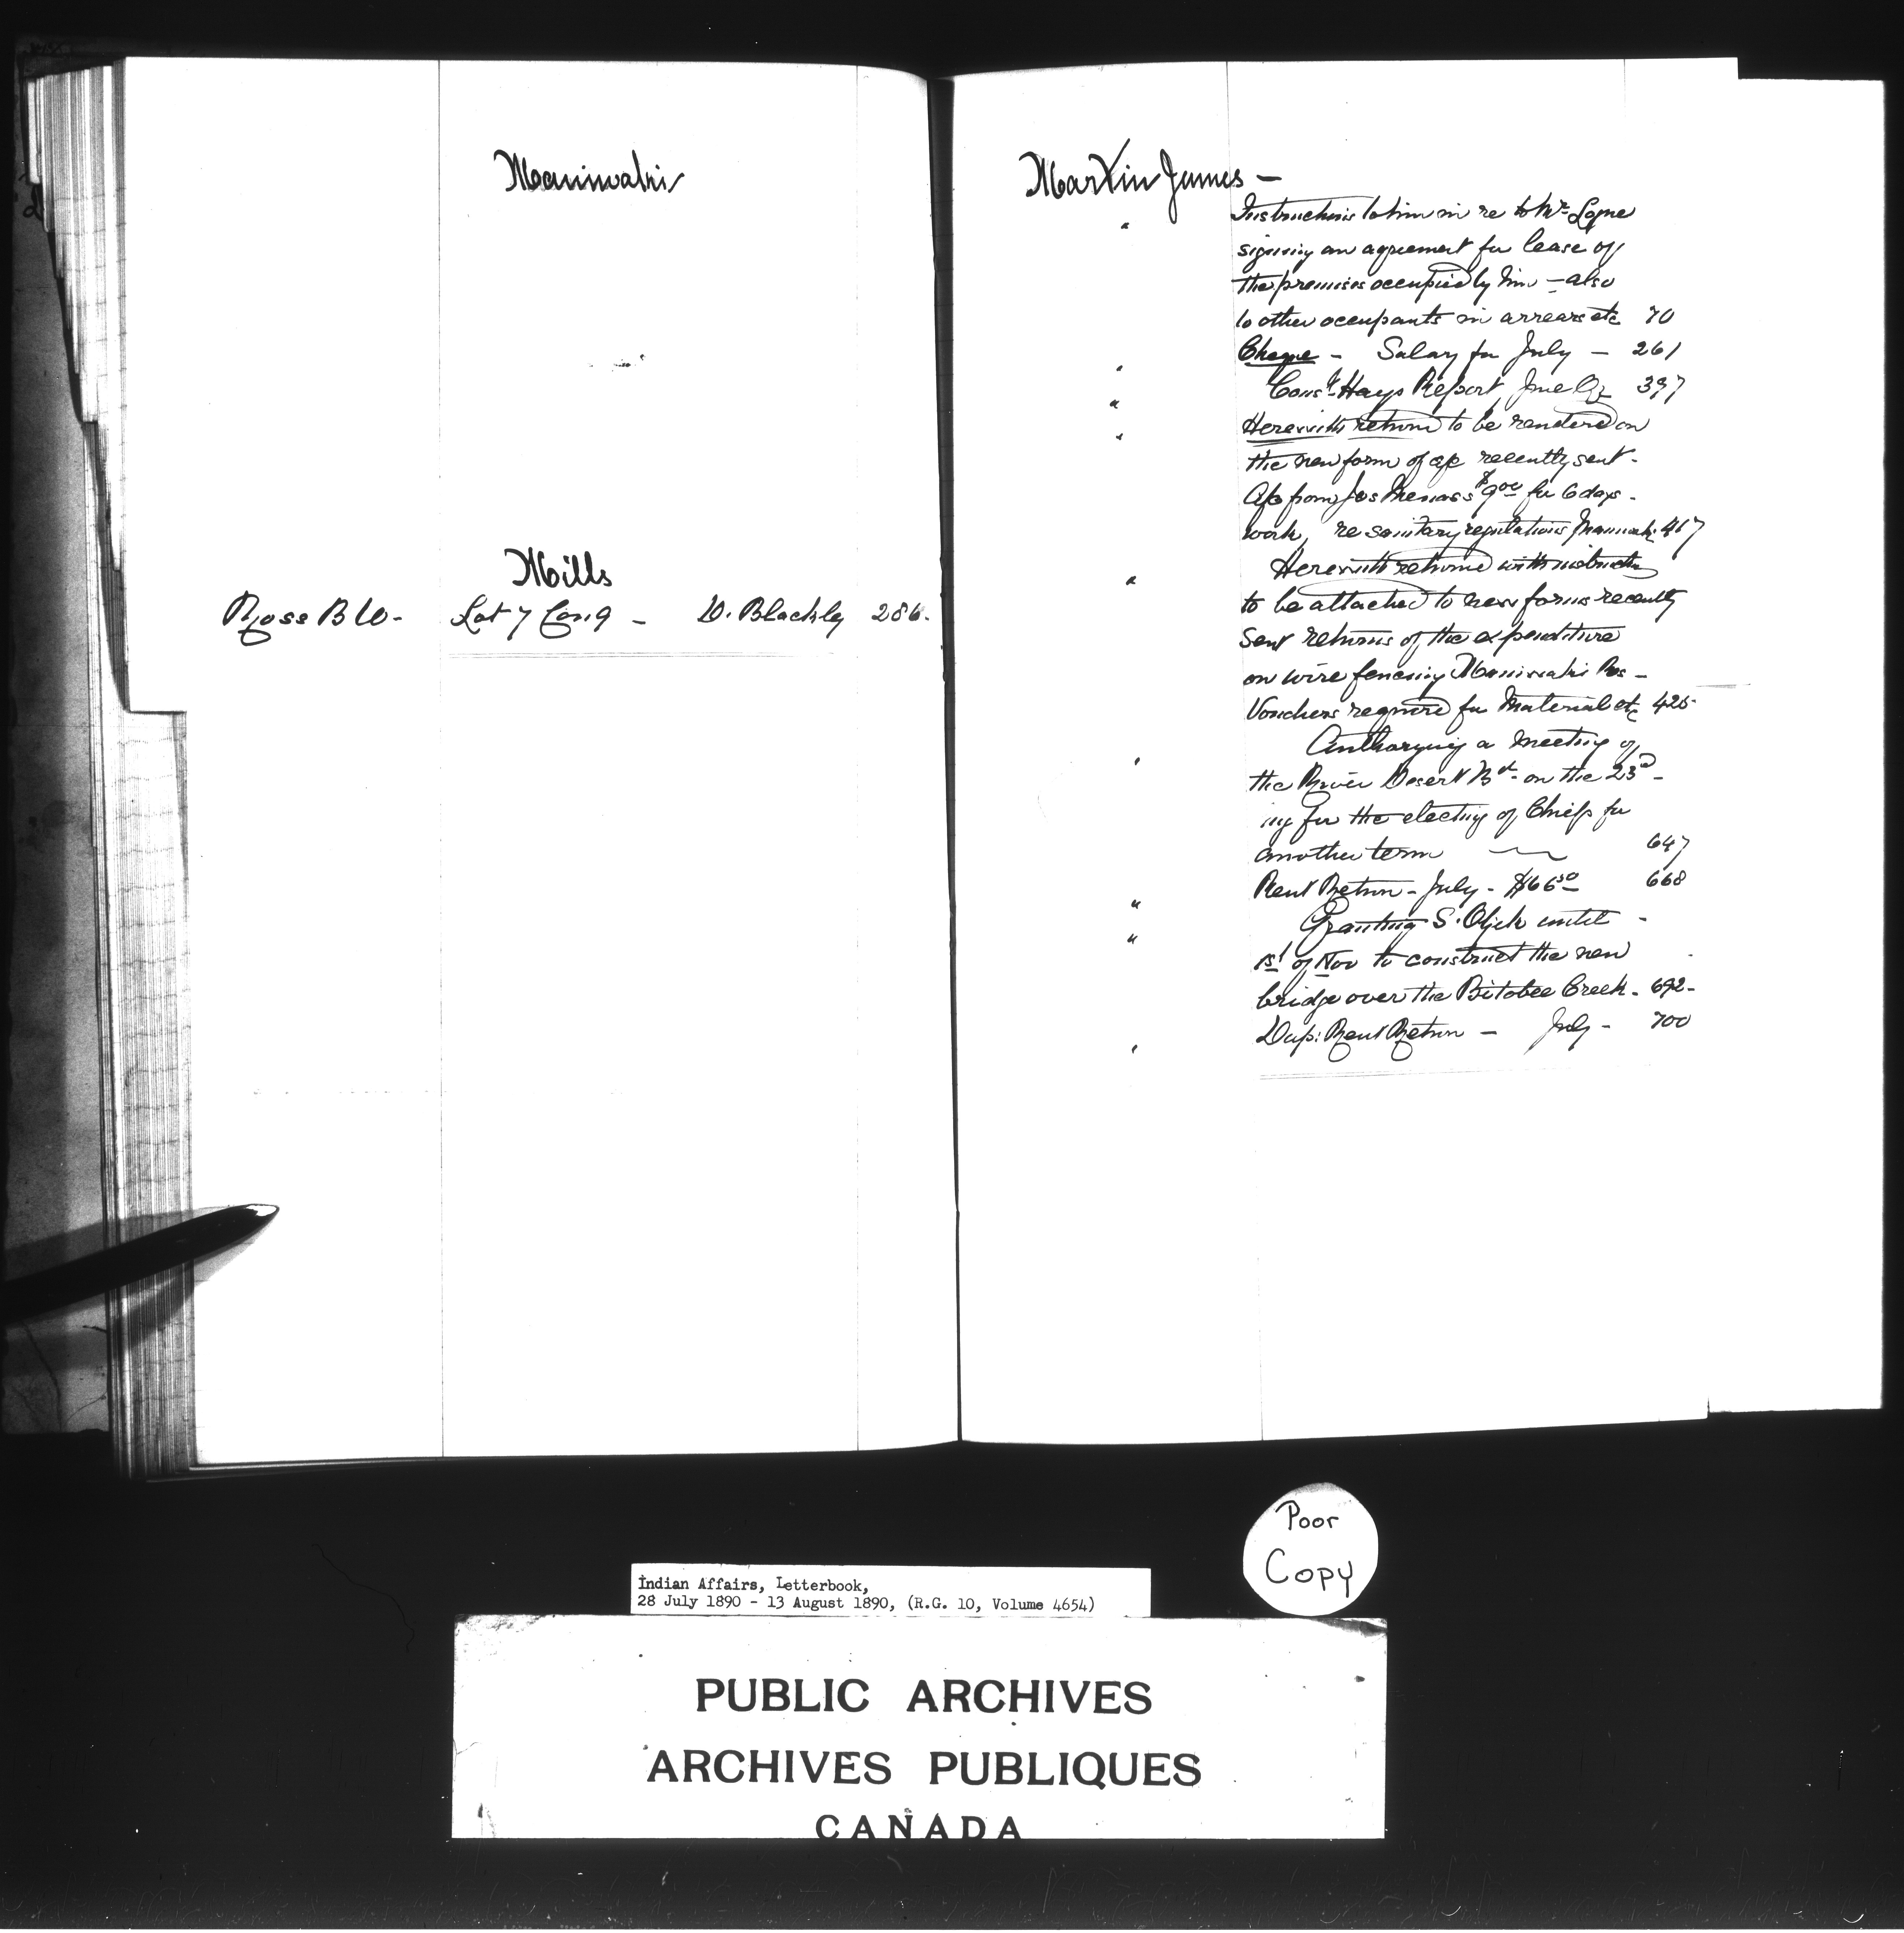 Maniwaki
Mills
Ross B W - Lot 7 Con 9 - D. Blackly 286.
Martin James -
" Instructions to him in re to Mr. Logue
signing an agreement for lease of
the premises occupied by him - also
to other occupants in arrears etc 70
" Cheque - Salary for July - 261
" Const. Hays Report, June Qr 397
" Herewith returned to be rendered on
the new form of a/c recently sent -
a/c from Jos $9.00 for 6 days -
work, re sanitary regulations Maniwaki 417
" Herewith returned with instructions
to be attached to new forms recently
sent returns of the expenditure
on wire fencing Maniwaki Res -
Vouchers required for Material etc 425
" Authorizing a meeting of
the River Desert Bd. on the 23rd -
for the electing of Chiefs for
another term 647
" Rent Return - July - $66.50 668
" Granting S. until -
1st of Nov to construct the new
bridge over the Bitobee Creek - 692 -
" Dup: Rent Return - July - 700
Poor
Copy
Indian Affairs, Letterbook,
28 July 1890 - 13 August 1890, (R.G. 10, Volume 4654)
PUBLIC ARCHIVES
ARCHIVES PUBLIQUES
CANADA